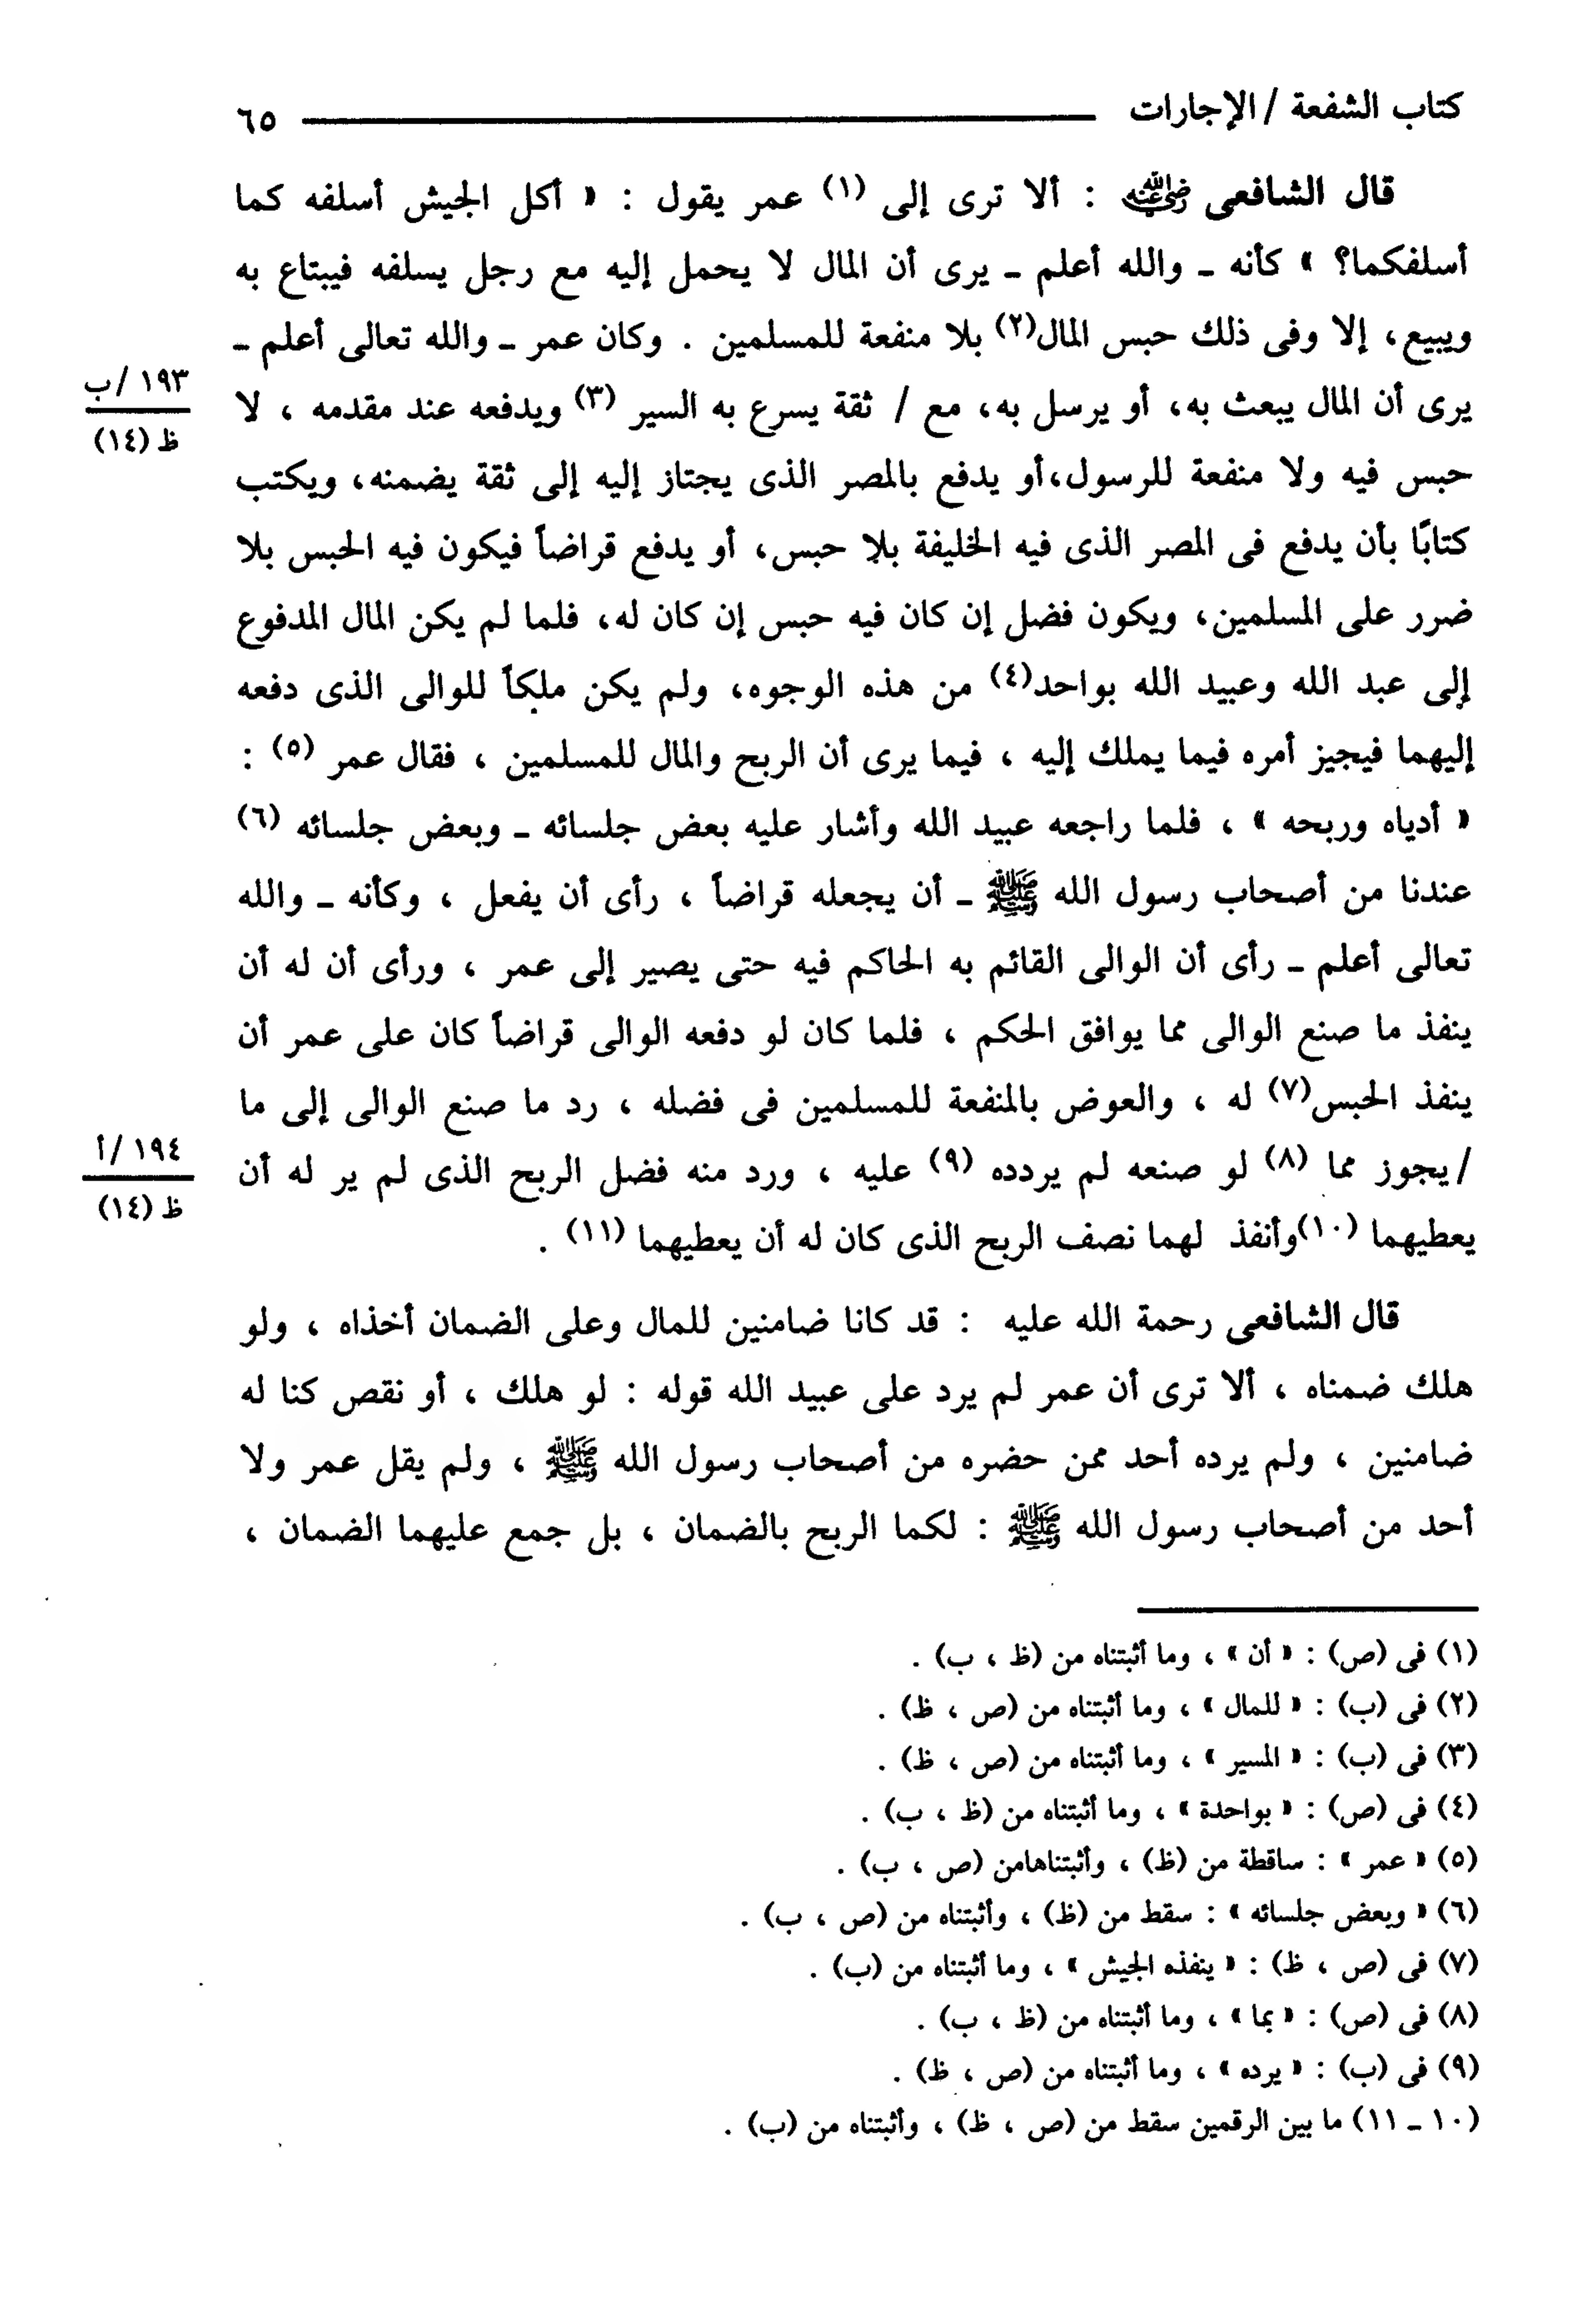 كتاب الشفعة / الإجارات ــــــــــــــــــــ ٦٥
قال الشافعى رضي الله عنه : ألا ترى إلى (١) عمر يقول : « أكل الجيش أسلفه كما
أسلفكما؟ » كأنه ـ والله أعلم ـ يرى أن المال لا يحمل إليه مع رجل يسلفه فيبتاع به
ويبيع، إلا وفى ذلك حبس المال(٢) بلا منفعة للمسلمين . وكان عمر ـ والله تعالى أعلم ـ
١٩٣/ب
ظ (١٤)
يرى أن المال يبعث به، أو يرسل به، مع / ثقة يسرع به السير (٣) ويدفعه عند مقدمه ، لا
حبس فيه ولا منفعة للرسول،أو يدفع بالمصر الذى يجتاز إليه إلى ثقة يضمنه، ويكتب
كتابًا بأن يدفع فى المصر الذى فيه الخليفة بلا حبس، أو يدفع قراضاً فيكون فيه الحبس بلا
ضرر على المسلمين، ويكون فضل إن كان فيه حبس إن كان له، فلما لم يكن المال المدفوع
إلى عبد الله وعبيد الله بواحد(٤) من هذه الوجوه، ولم يكن ملكاً للوالى الذى دفعه
إليهما فيجيز أمره فيما يملك إليه ، فيما يرى أن الربح والمال للمسلمين ، فقال عمر (٥) :
« أدياه وربحه » ، فلما راجعه عبيد الله وأشار عليه بعض جلسائه ـ وبعض جلسائه (٦)
عندنا من أصحاب رسول الله ﷺ ـ أن يجعله قراضاً ، رأى أن يفعل ، وكأنه ـ والله
تعالى أعلم ـ رأى أن الوالى القائم به الحاكم فيه حتى يصير إلى عمر ، ورأى أن له أن
ينفذ ما صنع الوالى مما يوافق الحكم ، فلما كان لو دفعه الوالى قراضاً كان على عمر أن
ينفذ الحبس(٧) له ، والعوض بالمنفعة للمسلمين فى فضله ، رد ما صنع الوالى إلى ما
١٩٤/أ
ظ (١٤)
/ يجوز مما (٨) لو صنعه لم يردده (٩) عليه ، ورد منه فضل الربح الذى لم ير له أن
يعطيهما (١٠)وأنفذ لهما نصف الربح الذى كان له أن يعطيهما (١١) .
قال الشافعى رحمة الله عليه : قد كانا ضامنين للمال وعلى الضمان أخذاه ، ولو
هلك ضمناه ، ألا ترى أن عمر لم يرد على عبيد الله قوله : لو هلك ، أو نقص كنا له
ضامنين ، ولم يرده أحد ممن حضره من أصحاب رسول الله ﷺ ، ولم يقل عمر ولا
أحد من أصحاب رسول الله ﷺ : لكما الربح بالضمان ، بل جمع عليهما الضمان ،
(١) فى (ص) : « أن » ، وما أثبتناه من (ظ ، ب) .
(٢) فى (ب) : « للمال » ، وما أثبتناه من (ص ، ظ) .
(٣) فى (ب) : « المسير » ، وما أثبتناه من (ص ، ظ) .
(٤) فى (ص) : « بواحدة » ، وما أثبتناه من (ظ ، ب) .
(٥) « عمر » : ساقطة من (ظ) ، وأثبتناهامن (ص ، ب) .
(٦) « وبعض جلسائه » : سقط من (ظ) ، وأثبتناه من (ص ، ب) .
(٧) فى (ص ، ظ) : « ينفذه الجيش » ، وما أثبتناه من (ب) .
(٨) فى (ص) : « بما » ، وما أثبتناه من (ظ ، ب) .
(٩) فى (ب) : « يرده » ، وما أثبتناه من (ص ، ظ) .
(١٠ ـ ١١) ما بين الرقمين سقط من (ص ، ظ) ، وأثبتناه من (ب) .